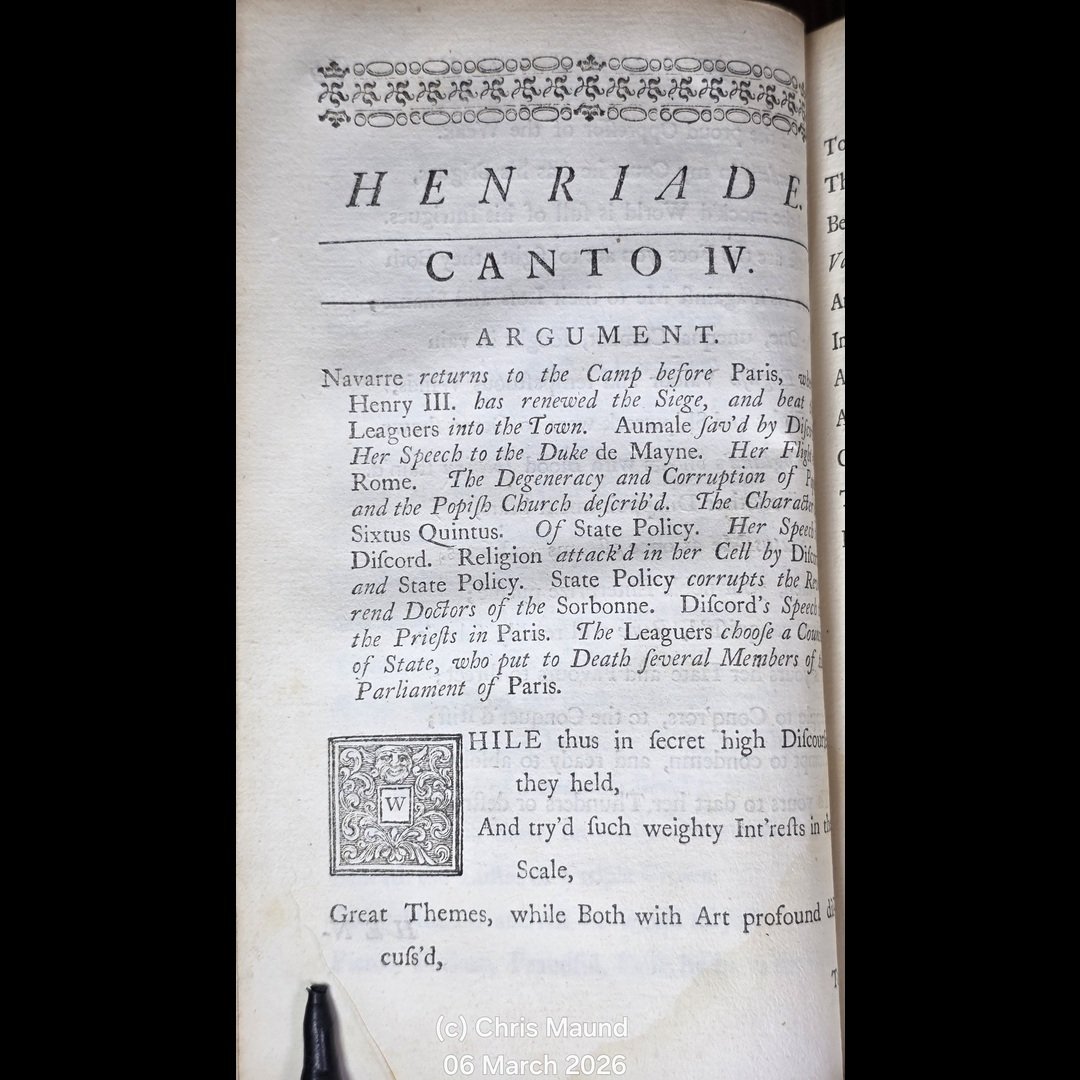 HENRIADE.
CANTO IV.
ARGUMENT.
Navarre returns to the Camp before Paris,
Henry III. has renewed the Siege, and beat
Leaguers into the Town. Aumale ſav'd by
Her Speech to the Duke de Mayne. Her
Rome. The Degeneracy and Corruption of
and the Popiſh Church deſcrib'd. The Character
Sixtus Quintus. Of State Policy. Her Speech
Diſcord. Religion attack'd in her Cell by
and State Policy. State Policy corrupts the
rend Doctors of the Sorbonne. Diſcord's Speech
the Prieſts in Paris. The Leaguers chooſe a
of State, who put to Death ſeveral Members of
Parliament of Paris.
WHILE thus in ſecret high Diſcourſe
they held,
And try'd ſuch weighty Int'reſts in the
Scale,
Great Themes, while Both with Art profound
cuſs'd,
(c) Chris Maund
06 March 2026